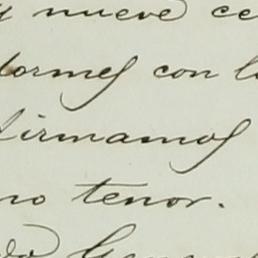 y nueve ce
formes con l
firmamos
mo tenor.
do Gene